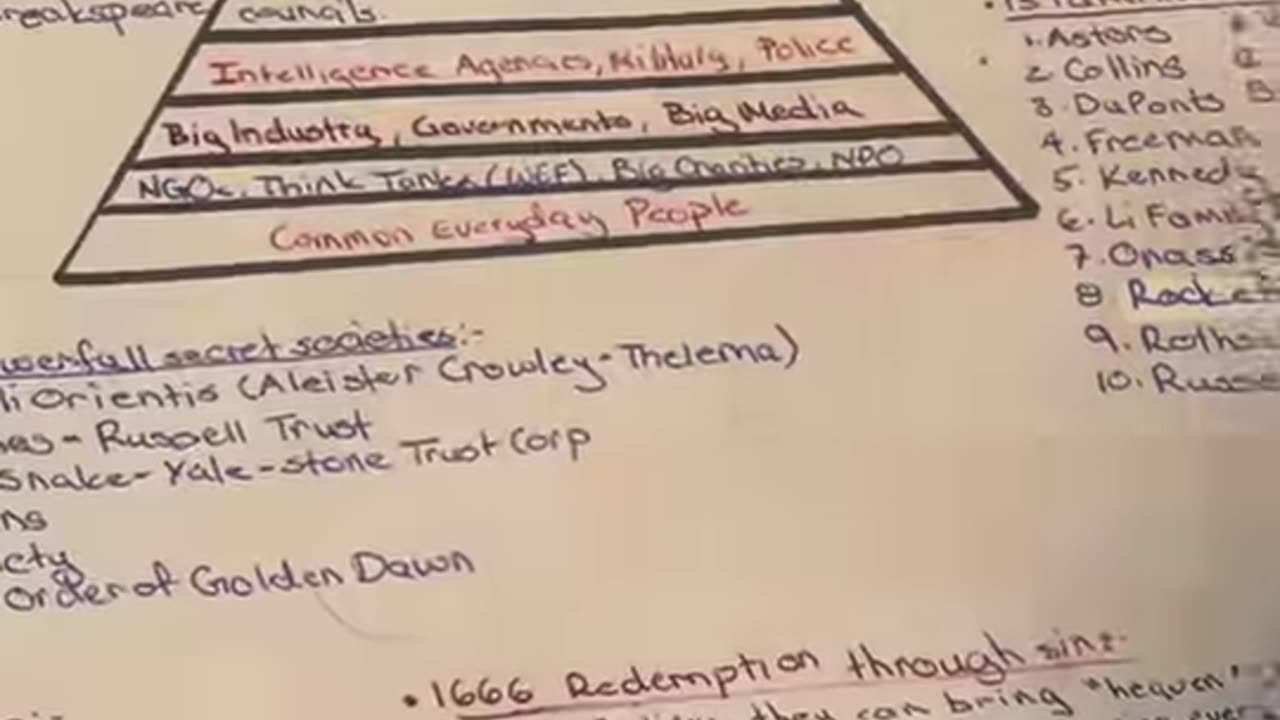 reakspeare councils.
Intelligence Agencies, Military, Police
Big Industry, Governments, Big Media
NGOs, Think Tanks (WEF), Big Charities, NPO
Common Everyday People
1. Astors
2. Collins
3. DuPonts
4. Freeman
5. Kenned
6. Li Fam
7. Onass
8 Rocke
9. Roths
10. Russe
werfull secret societies:-
i Orientis (Aleister Crowley-Thelema)
nes - Russell Trust
Snake - Yale - stone Trust Corp
ns
ciety
order of Golden Dawn
• 1666 Redemption through sin:-
they can bring "heaven"